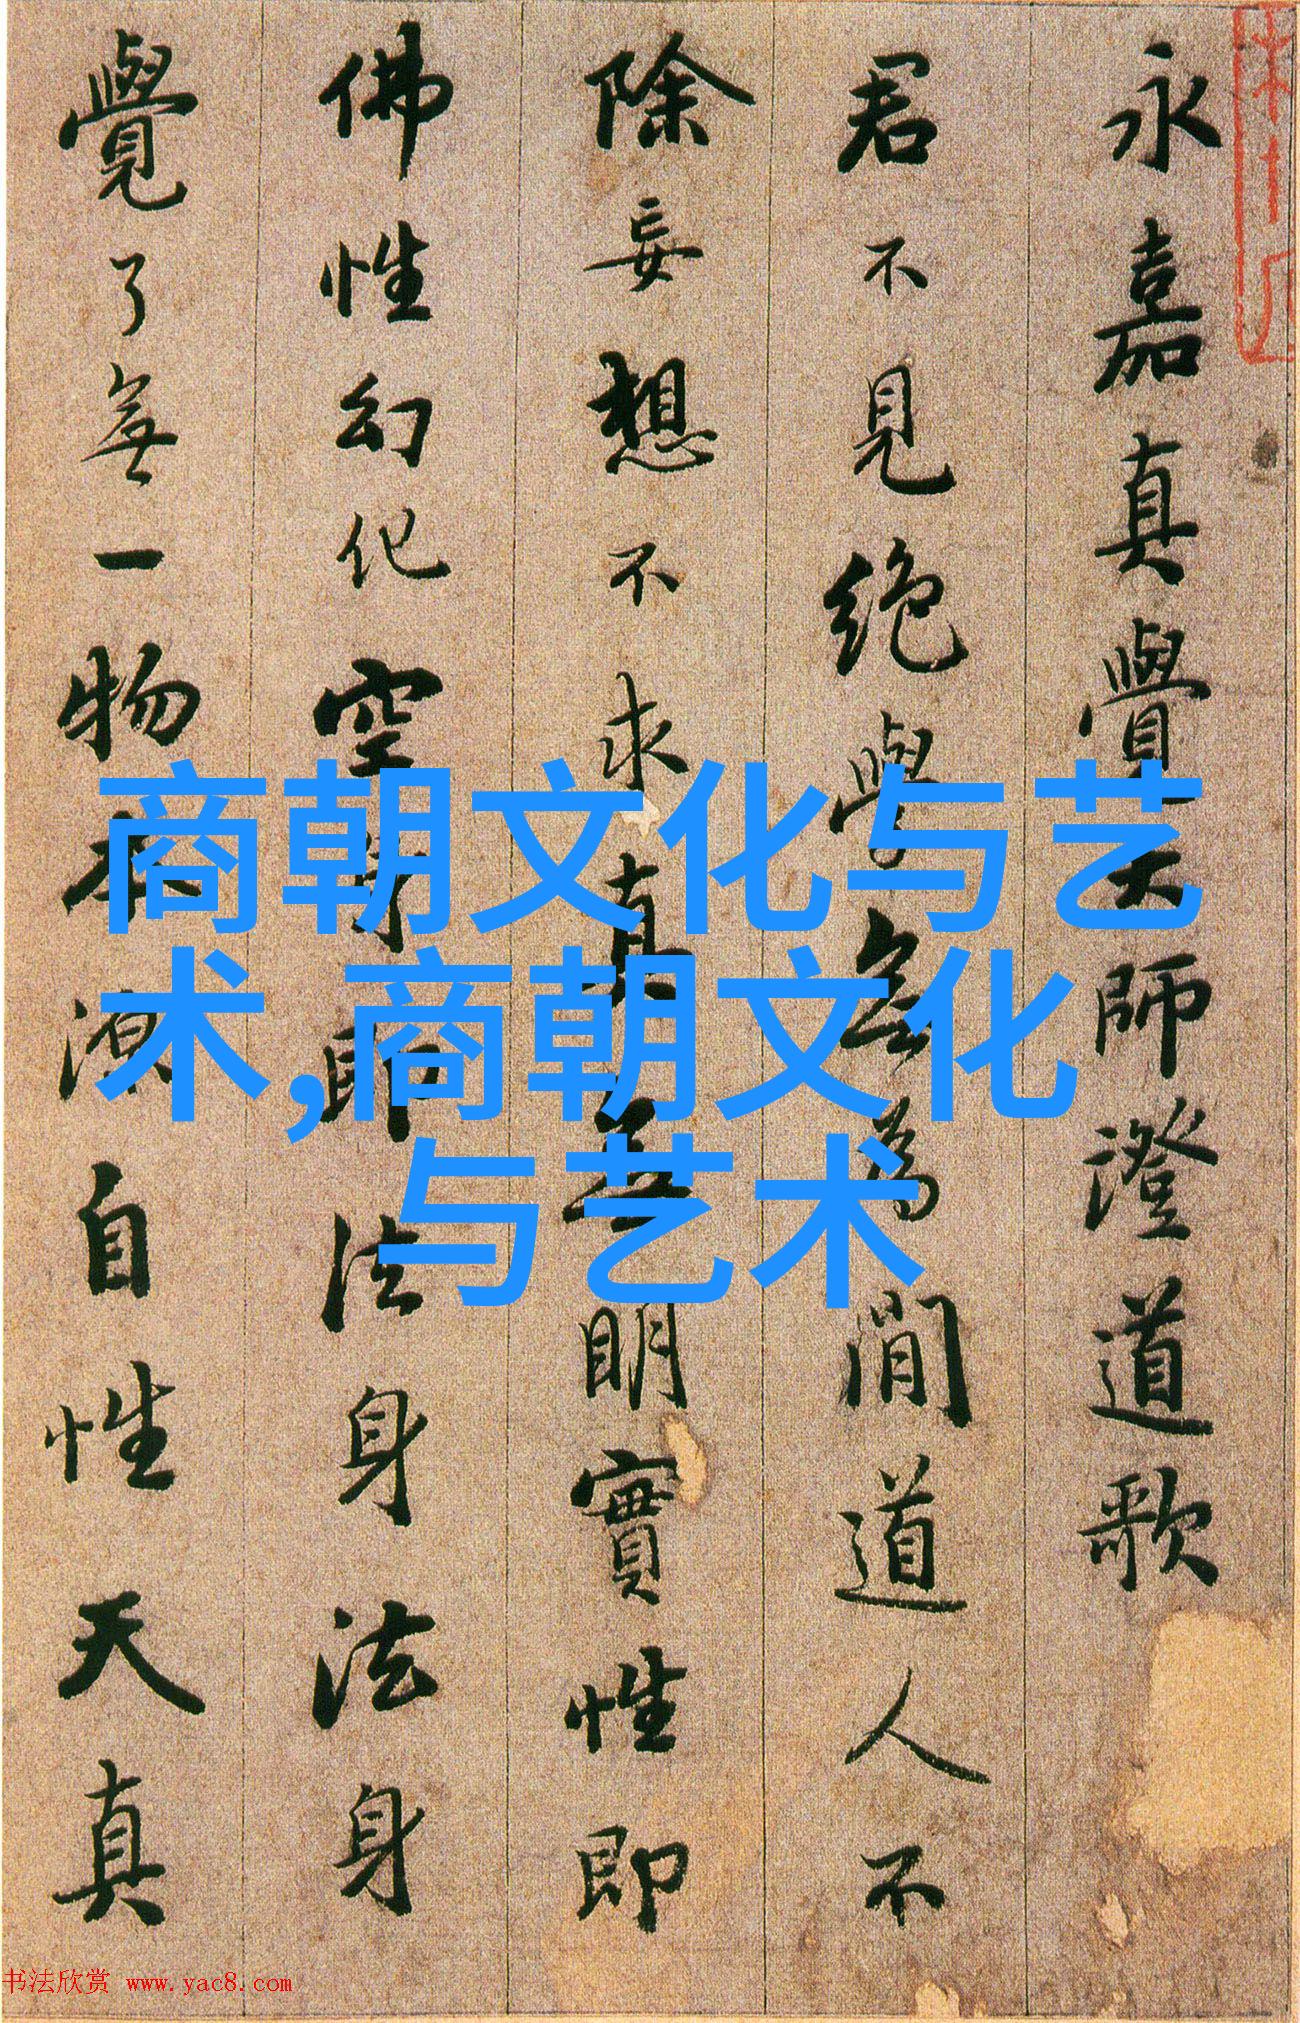 永嘉真覺大師澄道歌
君不見絶學無為閒道人不
除妄想不求真無明實性即
佛性幻化空身即法身法身
覺了無一物本源自性天真
商朝文化与艺
术,商朝文化
与艺术
书法欣赏 www.yac8.com